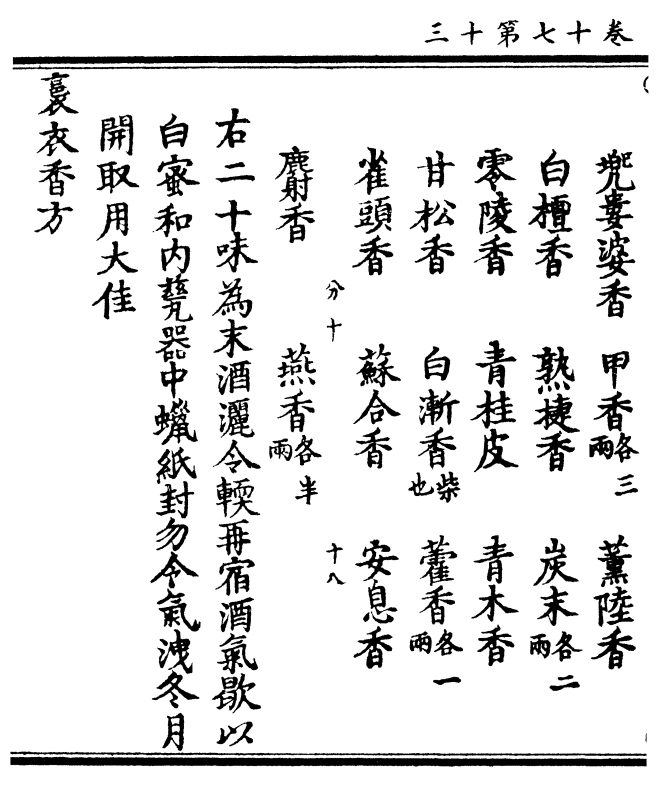 卷十七第十三
兜婁婆香 甲香各三兩 薰陸香
白檀香 熟捷香 炭末各二兩
零陵香 青桂皮 青木香
甘松香 白漸香柴也 藿香各一兩
雀頭香 蘇合香 安息香
分十 十八
麝香 燕香各半兩
右二十味為末酒灑令輭再宿酒氣歇以
白蜜和内甆器中蠟紙封勿令氣洩冬月
開取用大佳
裛衣香方